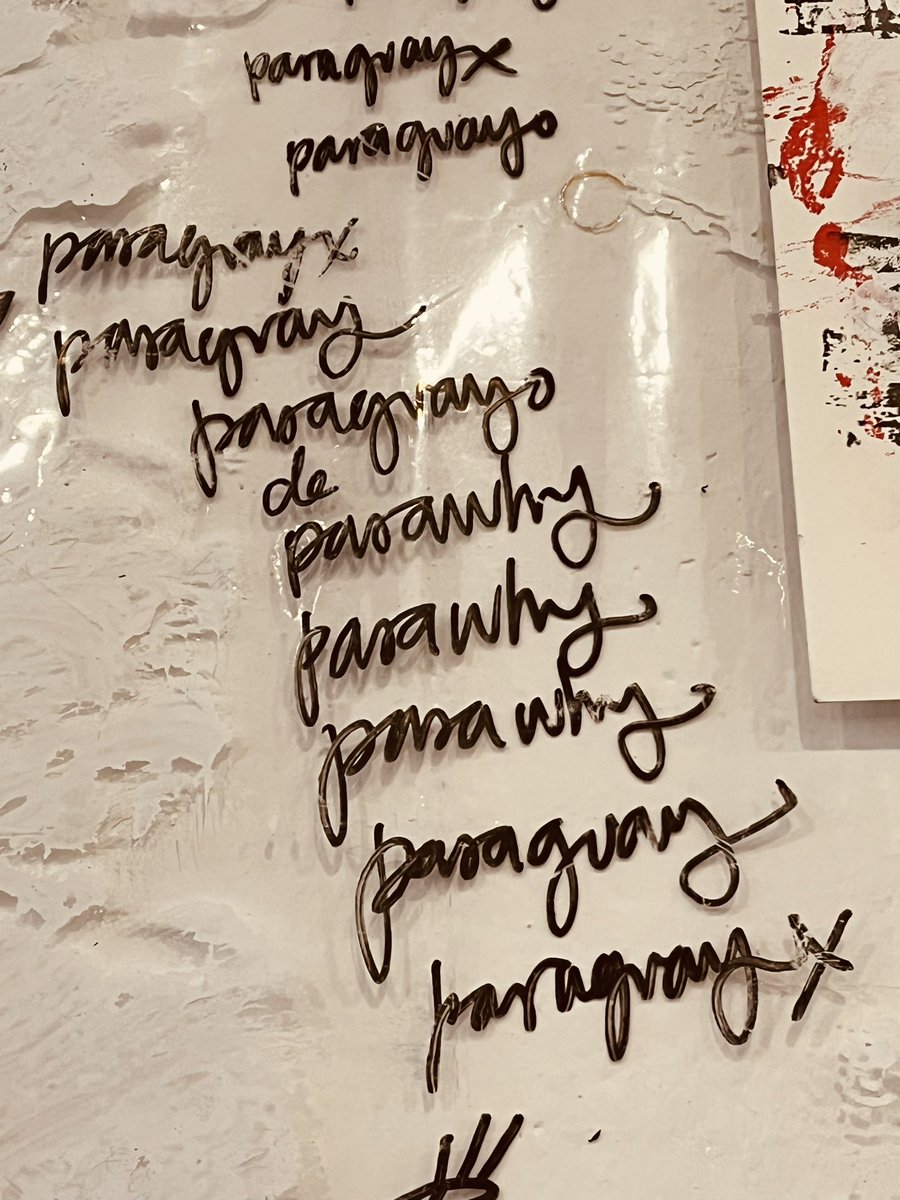 paragvayx
paragvayo
paragvayx
paragvay
paragvayo
de
parawhy
parawhy
para why
paragvay
paragvay x